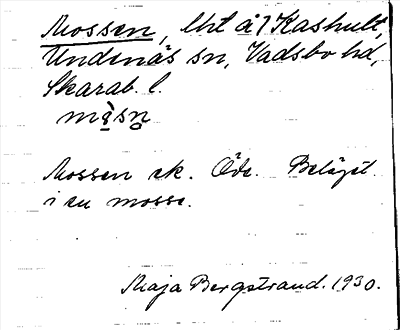 Mossen, lht å 1 Kashult,
Undenäs sn, Vadsbo hd,
Skarab. l.
Mossen sk. Öde. Beläget
i en mosse.
Maja Bergstrand. 1930.